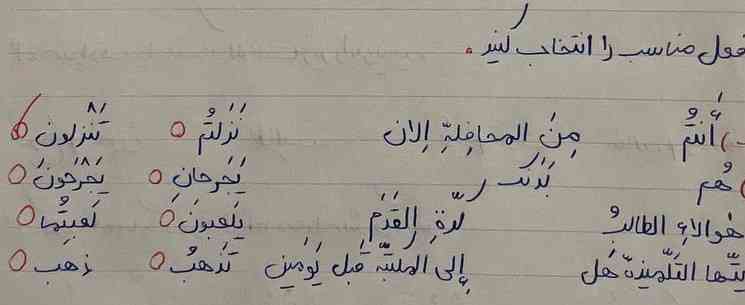 فعل مناسب را انتخاب کنید.
أَنتُم مِنَ المحافِلةِ الان نَزَلتُم تَنزِلونَ
هُم بَدَنَک یَجرحانِ یَجرَحونَ
هَولاءِ الطالبُ کُرّةِ القَدَمِ یَلعَبونَ لَعِبتُما
یَتُّها التِّلمیذةُ هَل إلی المَکتَبَّة قَبلَ یَومَینِ تَذهَبُ ذهب